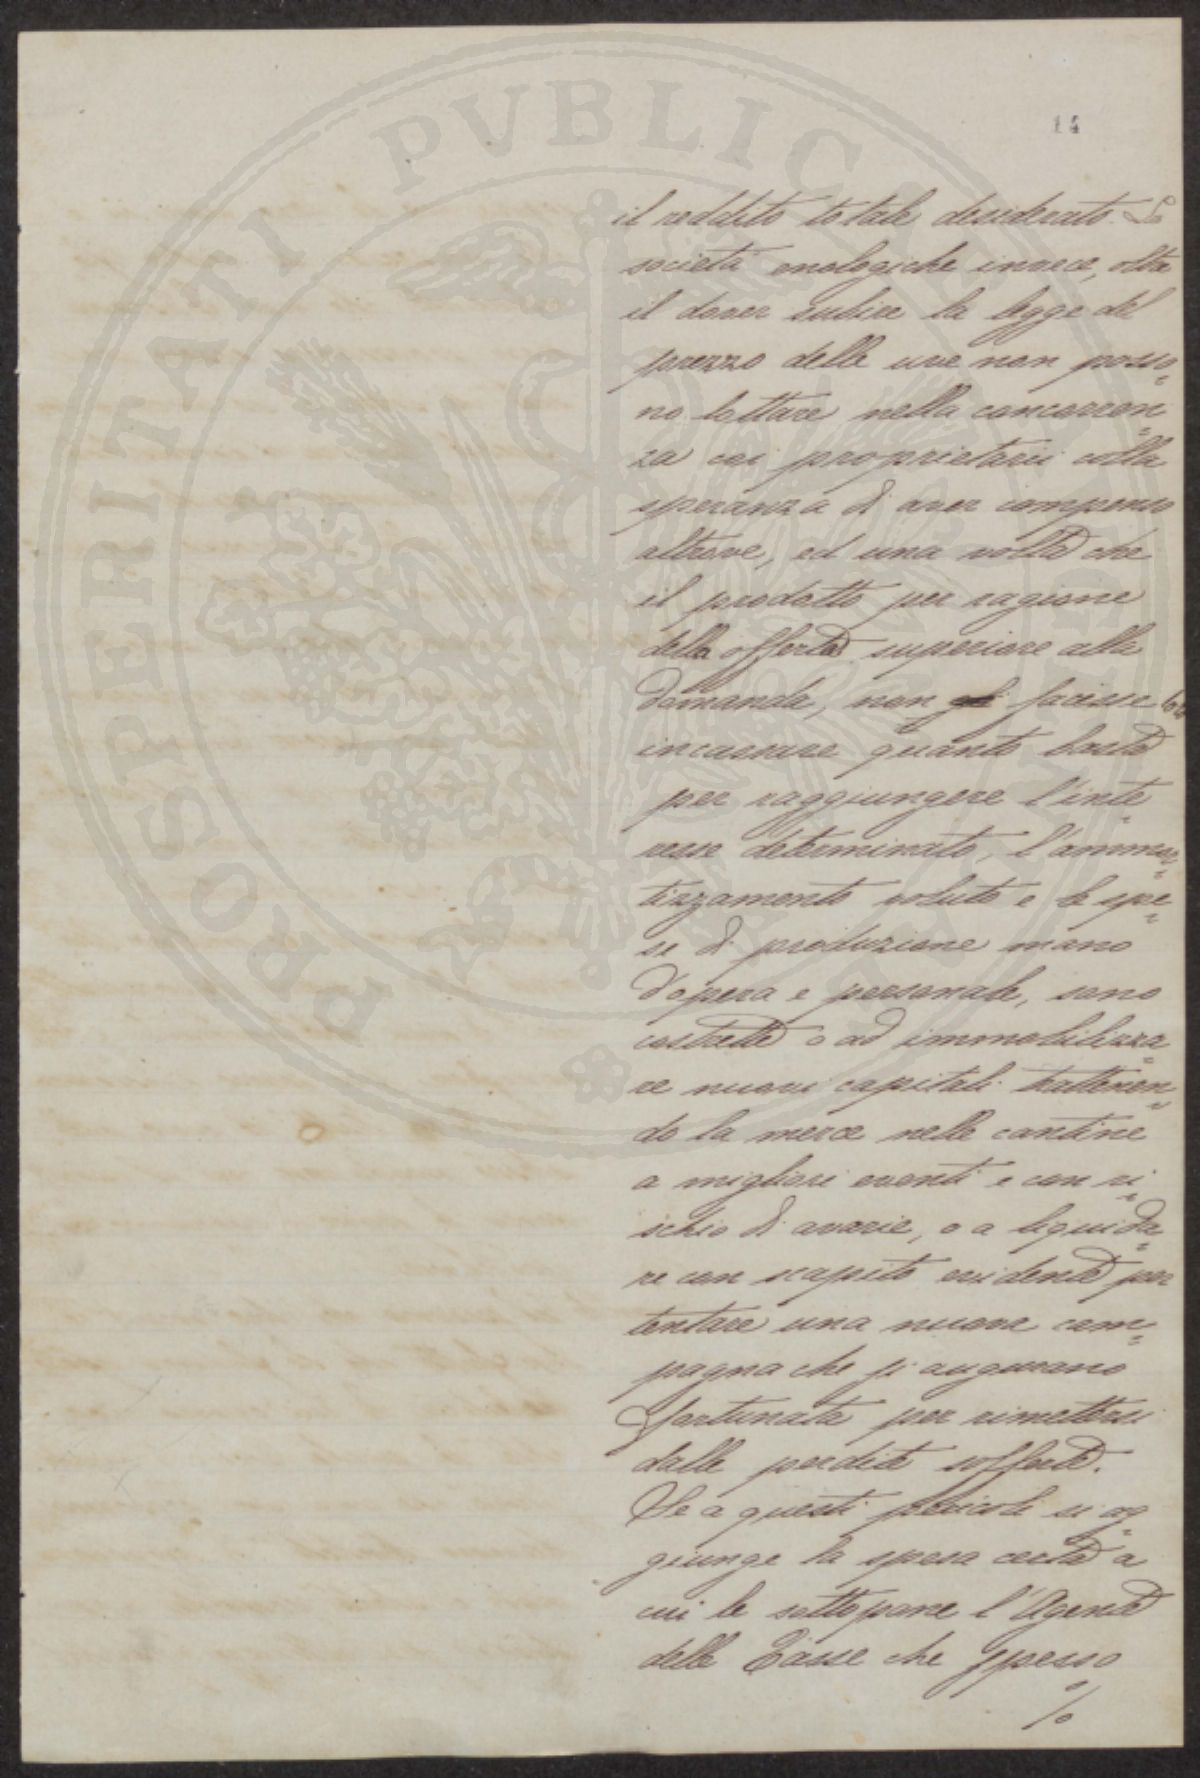 PROSPERITATI PVBLICAE AVGENDAE
14
il reddito totale desiderato. Le
società enologiche invece, oltre
il dover subire la legge del
prezzo delle uve non posso=
no lottare nella concorren=
za coi proprietarii colla
speranza di aver compenso
altrove, ed una volta che
il prodotto per ragione
della offerta superiore alla
domanda, non facesse
incassare quanto basta
per raggiungere l'inte=
resse determinato, l'ammor=
tizzamento voluto e le spe=
se di produzione mano
d'opera e personale, sono
costrette o ad immobilizza=
re nuovi capitali trattenen=
do la merce nelle cantine
a migliori eventi e con ri=
schio di avarie, o a liquida=
re con scapito evidente per
tentare una nuova cam=
pagna che si augurano
fortunata per rimettersi
dalle perdite sofferte.
Se a questi pericoli si ag=
giunge la spesa certa a
cui le sottopone l'Agente
delle Tasse che spesso
%